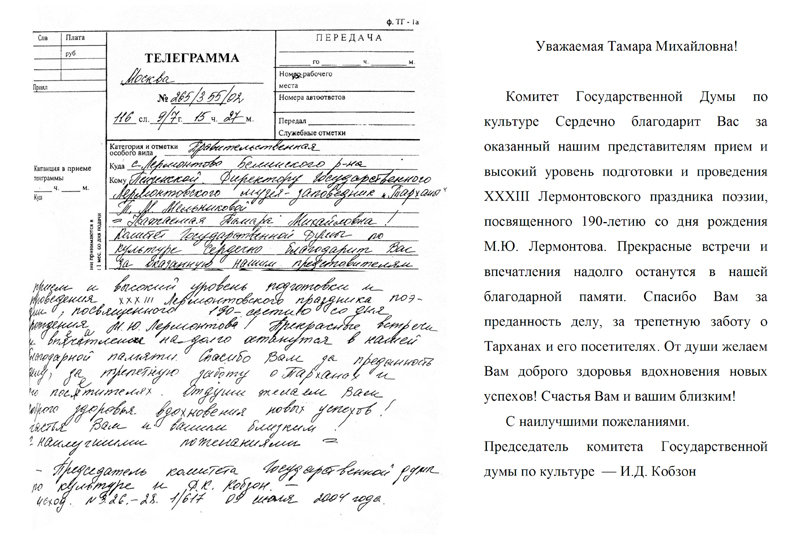 ф. ТГ - 1а
Сли Плата
руб
Принял
ТЕЛЕГРАММА
Москва
№ 265/355/02
116 сл. 9/7 г. 15 ч. 27 м.
ПЕРЕДАЧА
го ч. м.
Номер рабочего
места
Номера автоответов
Передал
Служебные отметки
Квитанция в приеме
телеграммы
ч. м.
Куд
Категория и отметки
особого вида Правительственная
Куда с. Лермонтово Белинского р-на
Кому Пензенской. Директору Государственного
Лермонтовского музея-заповедник "Тарханы"
Т. М. Мельниковой
= Уважаемая Тамара Михайловна!
Комитет Государственной Думы по
культуре Сердечно благодарит Вас
За оказанный нашим представителям
прием и высокий уровень подготовки и
проведения XXXIII Лермонтовского праздника поэ-
зии, посвященного 190-летию со дня
рождения М.Ю. Лермонтова! Прекрасные встречи
и впечатления на долго останутся в нашей
благодарной памяти. Спасибо Вам за преданность
делу, за трепетную заботу о Тарханах и
его посетителях. Отдуши желаем Вам
доброго здоровья вдохновения новых успехов!
Счастья Вам и вашим близким!
С наилучшими пожеланиями =
- Председатель комитета Государственной думы
по культуре и Д.К. Кобзон. —
исход. №3.26.-28. 1/617 09 июля 2004 года.
Уважаемая Тамара Михайловна!
Комитет Государственной Думы по
культуре Сердечно благодарит Вас за
оказанный нашим представителям прием и
высокий уровень подготовки и проведения
XXXIII Лермонтовского праздника поэзии,
посвященного 190-летию со дня рождения
М.Ю. Лермонтова. Прекрасные встречи и
впечатления надолго останутся в нашей
благодарной памяти. Спасибо Вам за
преданность делу, за трепетную заботу о
Тарханах и его посетителях. От души желаем
Вам доброго здоровья вдохновения новых
успехов! Счастья Вам и вашим близким!
С наилучшими пожеланиями.
Председатель комитета Государственной
думы по культуре — И.Д. Кобзон